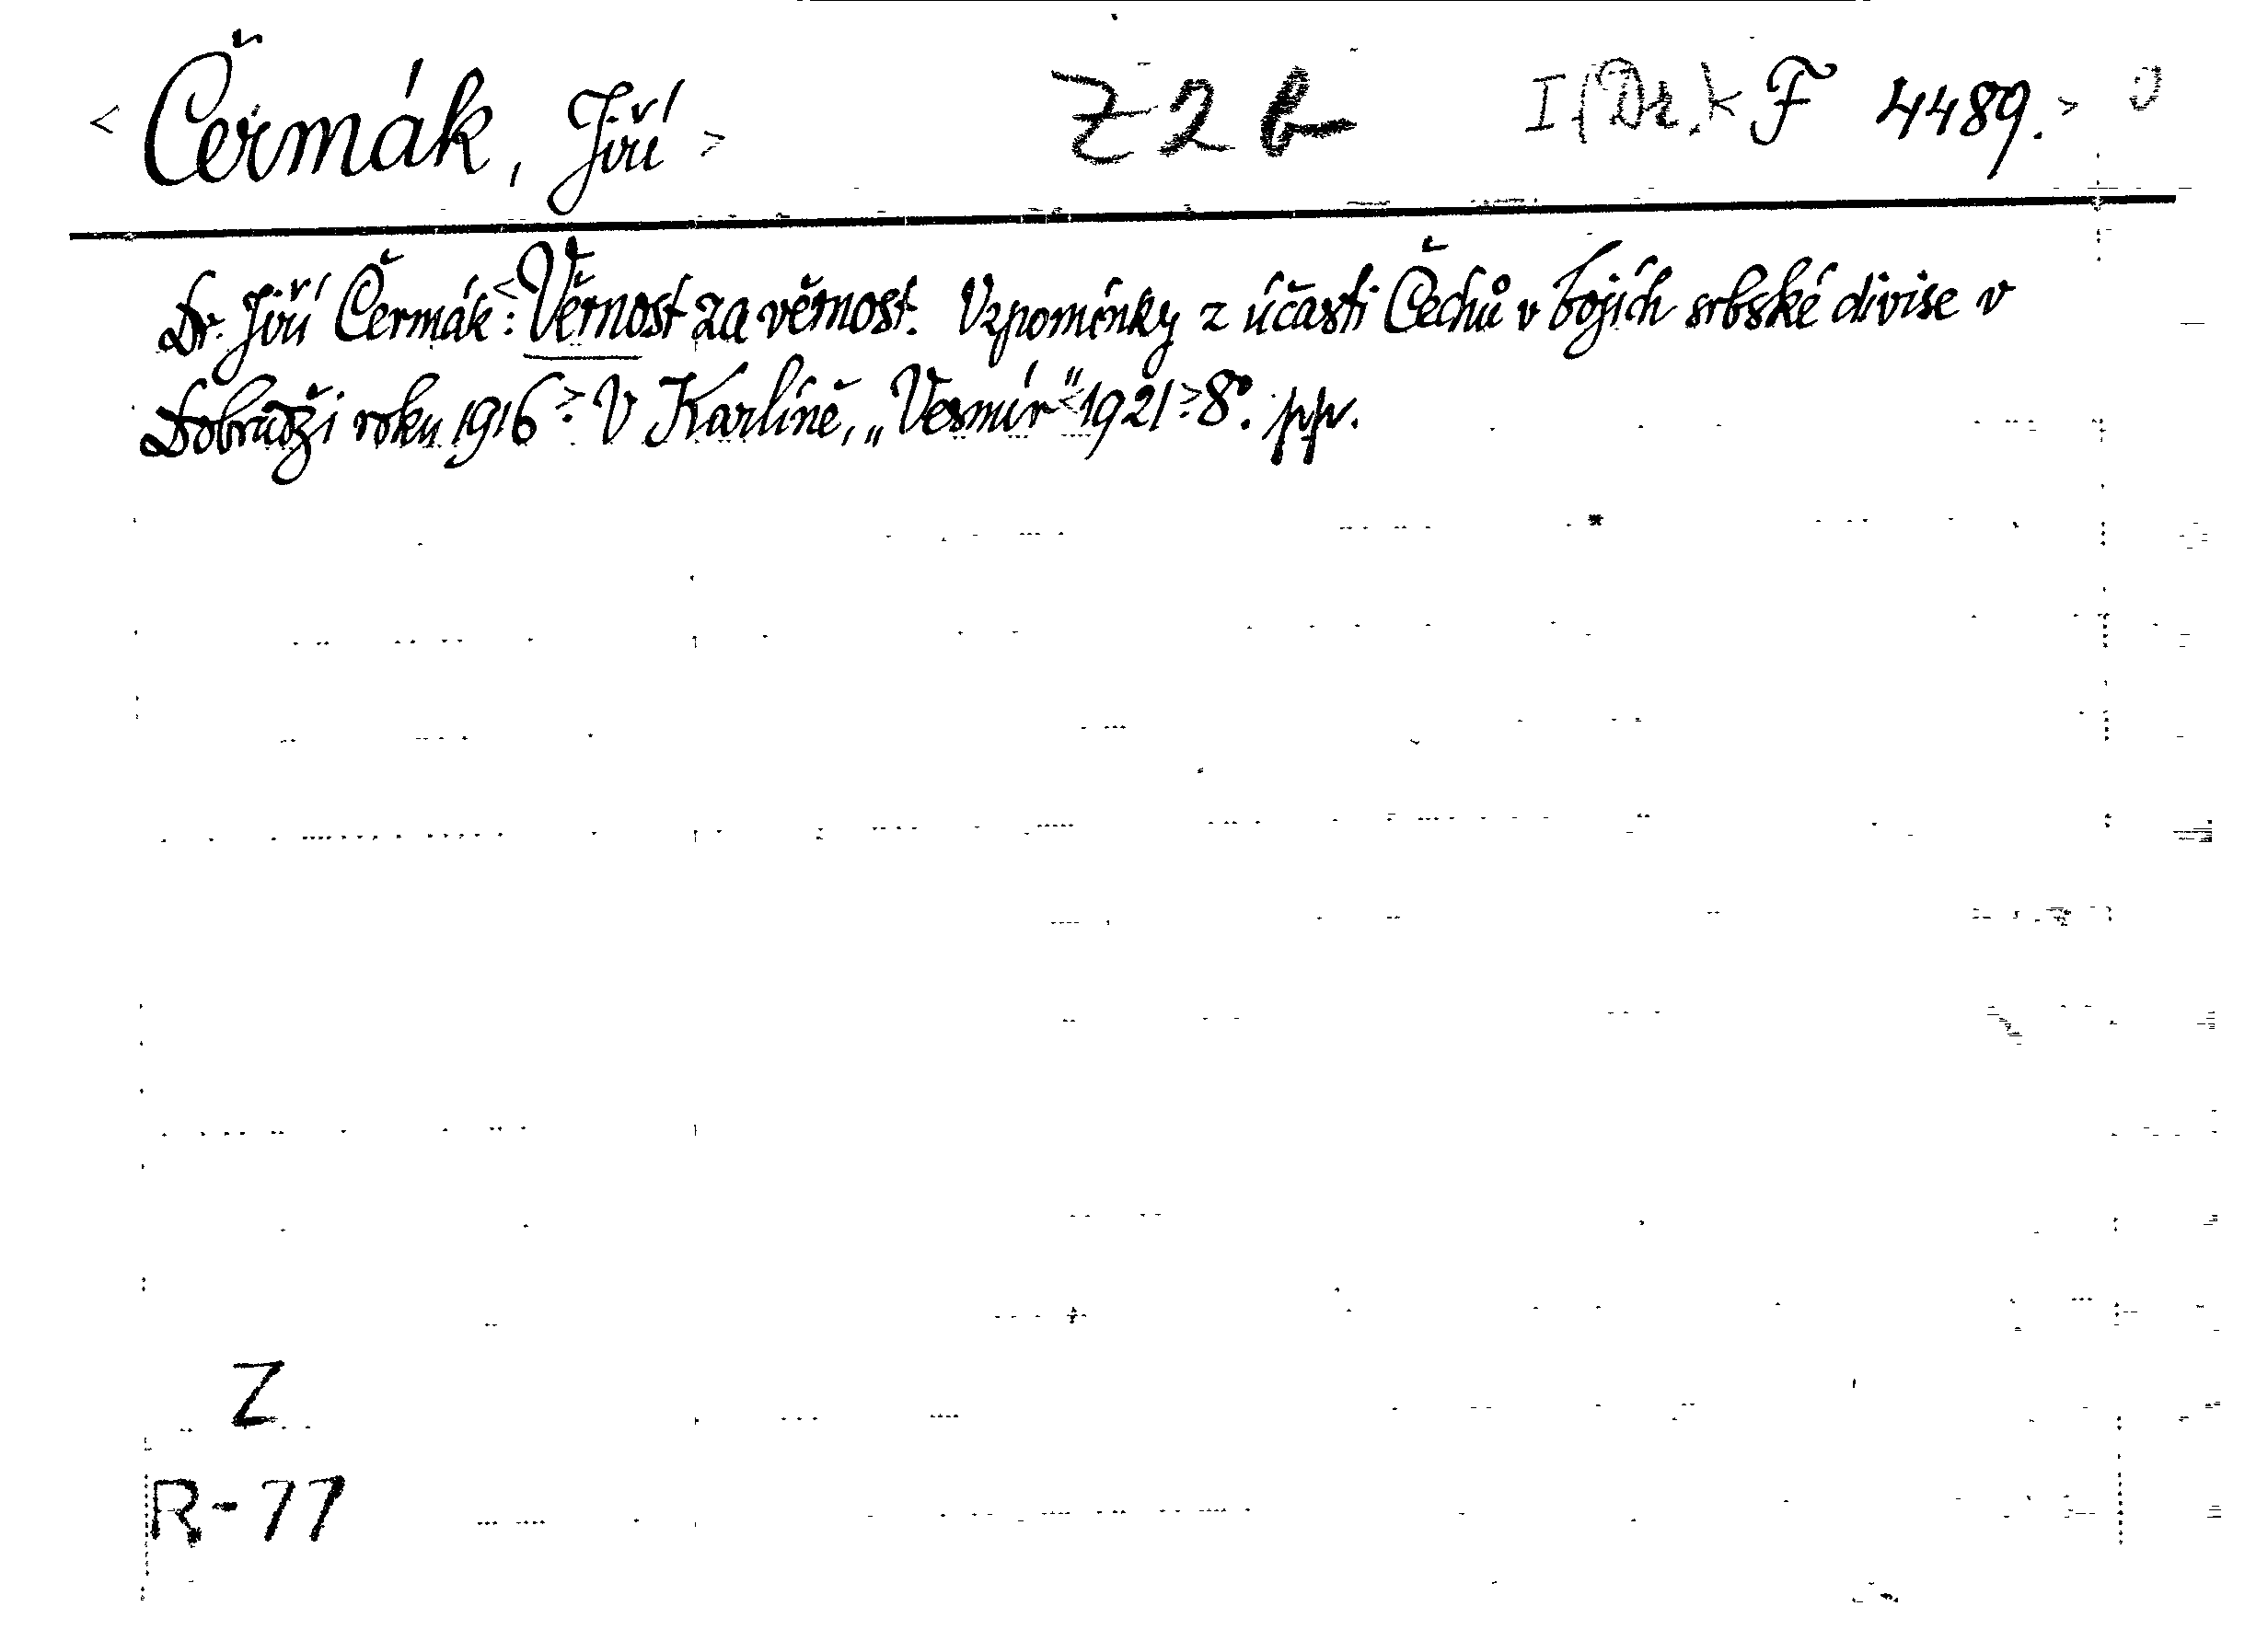 < Čermák, Jiří > Z 2 b I (Dr.) < F 4489. >
Dr. Jiří Čermák: < Věrnost za věrnost. Vzpomínky z účasti Čechů v bojích srbské divise v
Dobrudži roku 1916 >. V Karlíně, „Vesmír“ < 1921 >. 8°. pp.
Z
R-77